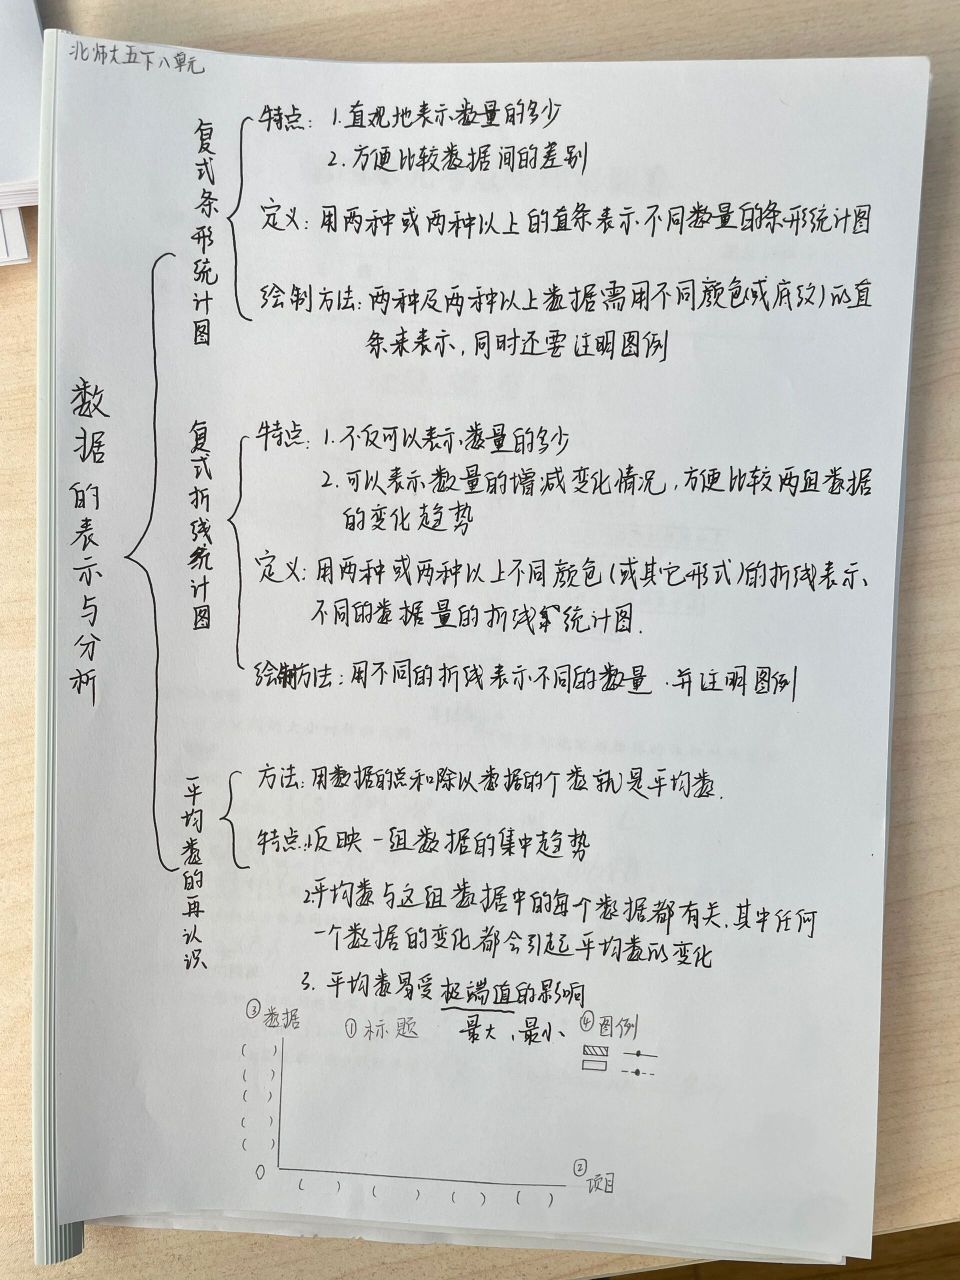 北师大五下八单元
数据的表示与分析
复式条形统计图
特点：1.直观地表示数量的多少
2.方便比较数据间的差别
定义：用两种或两种以上的直条表示不同数量的条形统计图
绘制方法：两种及两种以上数据需用不同颜色(或底纹)的直
条来表示，同时还要注明图例
复式折线统计图
特点：1.不仅可以表示数量的多少
2.可以表示数量的增减变化情况，方便比较两组数据
的变化趋势
定义：用两种或两种以上不同颜色(或其它形式)的折线表示
不同的数据量的折线统计图.
绘制方法：用不同的折线表示不同的数量，并注明图例
平均数的再认识
方法：用数据的总和除以数据的个数就是平均数.
特点：1.反映一组数据的集中趋势
2.平均数与这组数据中的每个数据都有关，其中任何
一个数据的变化都会引起平均数的变化
3.平均数易受极端值的影响
最大、最小
③数据
①标题
④图例
( )
( )
( )
( )
( )
0
( ) ( ) ( ) ( )
②项目